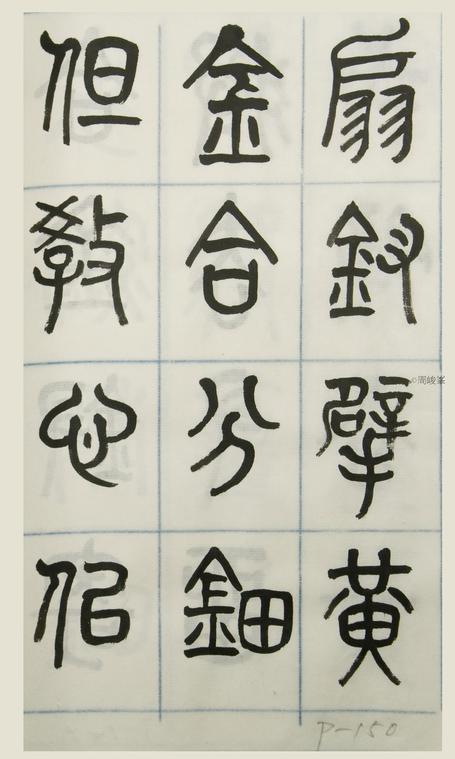 扇釵擘黃
金合分鈿
但教心似
©周峻峯
P-150